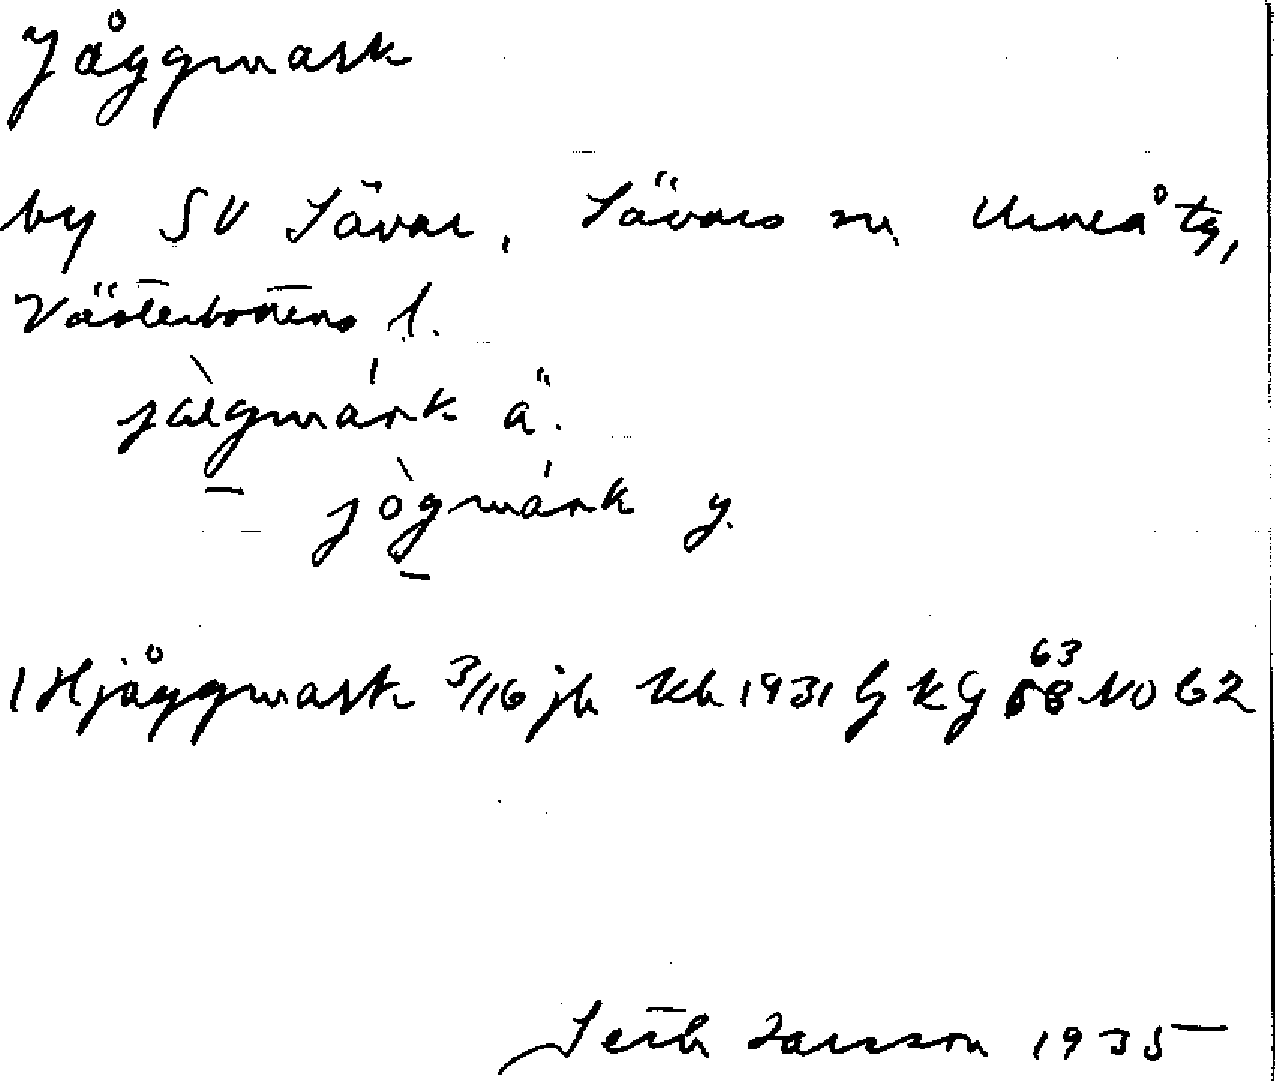 Jåggmark
by SV Sävar, Sävars sn, Umeå tg,
Västerbottens l.
jæ̀gmárk ä.
jògmárk y.
1 Hjåggmark 3/16 jb Kb 1931 GKG 63 NO 62
Seth Larsson 1935